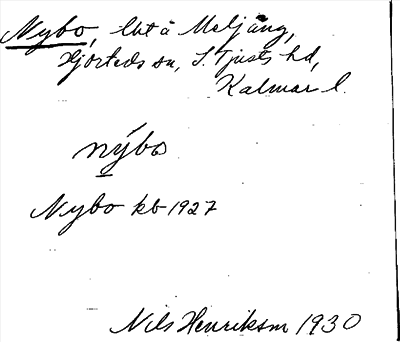 Nybo, lht å Meljäng,
Hjorteds sn, S. Tjusts hd,
Kalmar l.
nýbo
Nybo kb 1927
Nils Henriksm 1930